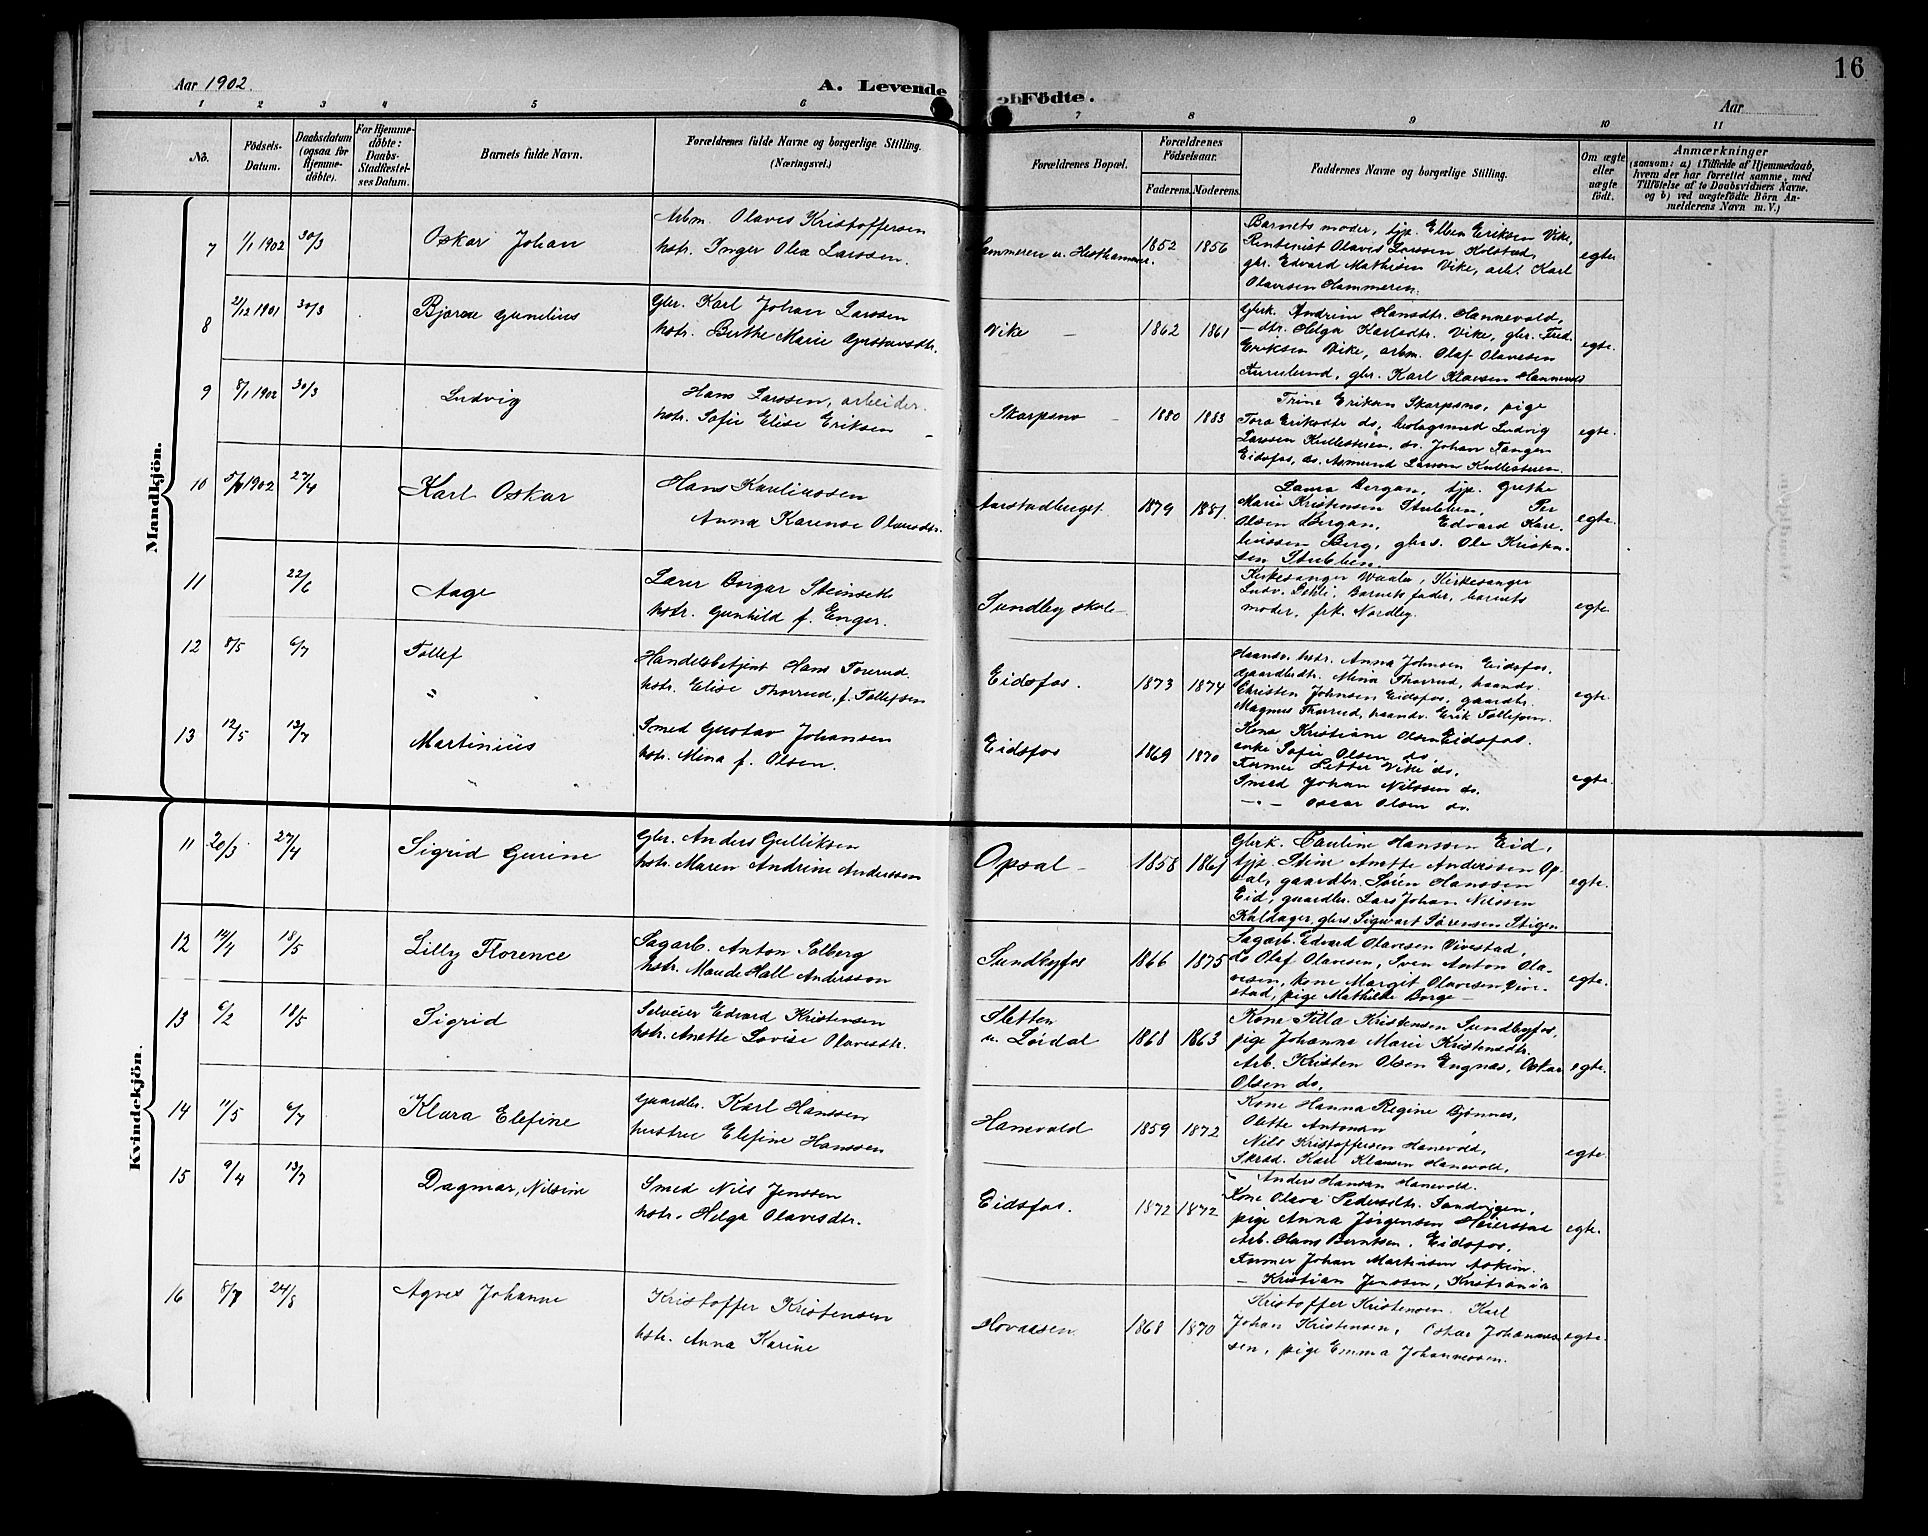 16
Aar 1902.
A. Levende Födte.
Aar
1 2 3 4 5 6 7 8 9 10 11
No.
Födsels-Datum.
Daabsdatum (ogsaa for Hjemme-döbte).
For Hjemme-döbte: Daabs-Stadfæstel-ses Datum.
Barnets fulde Navn.
Forældrenes fulde Navne og borgerlige Stilling. (Næringsvei.)
Forældrenes Bopæl.
Forældrenes Födselsaar.
Faderens. Moderens.
Faddernes Navne og borgerlige Stilling.
Om ægte eller uægte födt.
Anmærkninger
(saasom: a) i Tilfælde af Hjemmedaab,
hvem der har forrettet samme, med
Tilföielse af to Daabsvidners Navne,
og b) ved uægtefödte Börn An-
melderens Navn m. V.)
Mandkjön.
7 1/1 1902 30/3 Oskar Johan
Arbm. Olaves Kristoffersen
hstr. Inger Olea Larssen.
Hammeren u. Hesthammer. 1852 1856
Barnets moder, tjp. Ellen Eriksen Vike,
Rentenist Olaves Larssen Kolstad,
gbr. Edvard Mathisen Vike, arb. Karl
Olavesen Hammeren.
egte.
8 2/12 1901 30/3 Bjarne Gunelius
Gbr. Karl Johan Larssen
hstr. Berthe Marie Gustavsdtr.
Vike 1862 1861
Gbrk. Andrine Hansdtr. Hannevold,
— dtr. Helga Karlsdtr. Vike, gbr. Fred.
Eriksen Vike, arbm. Olaf Olavesen
gbr. Karl Klavsen Hannevold
egte.
9 8/1 1902 30/3 Ludvig
Hans Larssen, arbeider.
hstr. Sofie Elise Eriksen
Skarpsno 1880 1883
Trine Eriksen Skarpsno, pige
Tora Eriksdtr do, bolagsmed Ludvig
Larssen Kullesteien, do. Johan Tangen
Eidsfos, do. Asmund Larssen Kullesteien.
egte.
10 1902 27/4 Karl Oskar
Hans Kareliussen
Anna Karense Olavesdtr.
Aarstadberget. 1879 1881.
Laura Bergan, tjp. Grethe
Marie Kristensen Stubben, Per
Olsen Bergan, Edvard Kare-
liussen Berg, gbrs. Ole Kristen-
sen Stubben.
egte.
11 22/6 Aage
Lærer Borgar Steinseth
hstr. Gunhild f. Enger.
Sundby skole
Kirkesanger Waaler, Kirkesanger
Ludv. Barnets fader, barnets
moder, frk. Nordby.
egte.
12 8/5 6/7 Tollef
Handelsbetjent Hans Torerud,
hstr. Elise Thorrud, f. Tollefsen
Eidsfos. 1873 1874
Haandv. hstr. Anna Johnsen Eidsfos,
Gaardbrdtr. Mina Thorrud, haandv.
Christen Johnsen Eidsfos, gaardbr.
Magnus Thorrud, haandv. Erik Tollefsen.
egte.
13 12/5 13/7 Martinius
Smed Gustav Johansen
hstr. Mina f. Olsen.
Eidsfos 1869 1870
Kone Kristiane Olsen Eidsfos.
enke Sofie Olsen do.
Former Petter Vike do.
Smed Johan Nilssen do.
—"— Oscar Olsen do.
egte.
Kvindekjön.
11 20/3 27/4 Sigrid Gurine
Gbr. Anders Gulliksen
hstr. Maren Andrine Anderssen
Opsal 1858 1861
Gbrk. Pauline Hanssen Eid,
tjp. Stine Anette Anderssen Op-
sal, gaardbr. Søren Hanssen
Eid, gaardbr. Lars Johan Nilssen
Kaldager, gbrs Sigwart Sørensen Stigen
egte.
12 14/4 18/5 Lilly Florence
Sagarb. Anton Solberg
hstr. Maude Hall Andersson
Sundbyfos 1866 1875
Sagarb. Edvard Olavesen Vivestad,
do Olaf Olavesen, Sven Anton Ola-
vesen, kone Margit Olavesen Vive-
stad, pige Mathilde Borge
egte.
13 6/2 18/5 Sigrid
Selveier Edvard Kristensen
hstr. Anette Lovise Olavesdtr.
Sletten u. Løvdal 1868 1863
Kone Tilla Kristensen Sundbyfos,
pige Johanna Marie Kristensdtr,
Arb. Kristen Olsen Engnæs, Oskar
Olsen do,
egte.
14 11/5 6/7 Klara Elefine
Gaardbr. Karl Hanssen
hustru Elefine Hanssen
Hanevold 1859 1872
Kone Hanna Regine Bjønnes,
Olette Antonsen
Nils Kristoffersen Hanevold,
Skræd. Karl Klausen Hanevold,
Anders Hansen Hanevold.
egte
15 9/4 13/7 Dagmar, Nilsine
Smed Nils Jenssen
hstr. Helga Olavesdtr.
Eidsfos. 1872 1872
Kone Olava Pedersdtr. Sandvigen,
pige Anna Jørgensen Heierstad
Arb. Hans Berntsen, Eidsfos,
Former Johan Martinsen Askim.
— Kristian Jenssen, Kristiania
egte.
16 8/7 24/8 Agnes Johanne
Kristoffer Kristensen
hstr. Anna Karine
Hovaasen 1868 1870
Kristoffer Kristensen. Karl
Johan Kristensen, Oskar Johannes-
sen, pige Emma Johannessen.
egte.